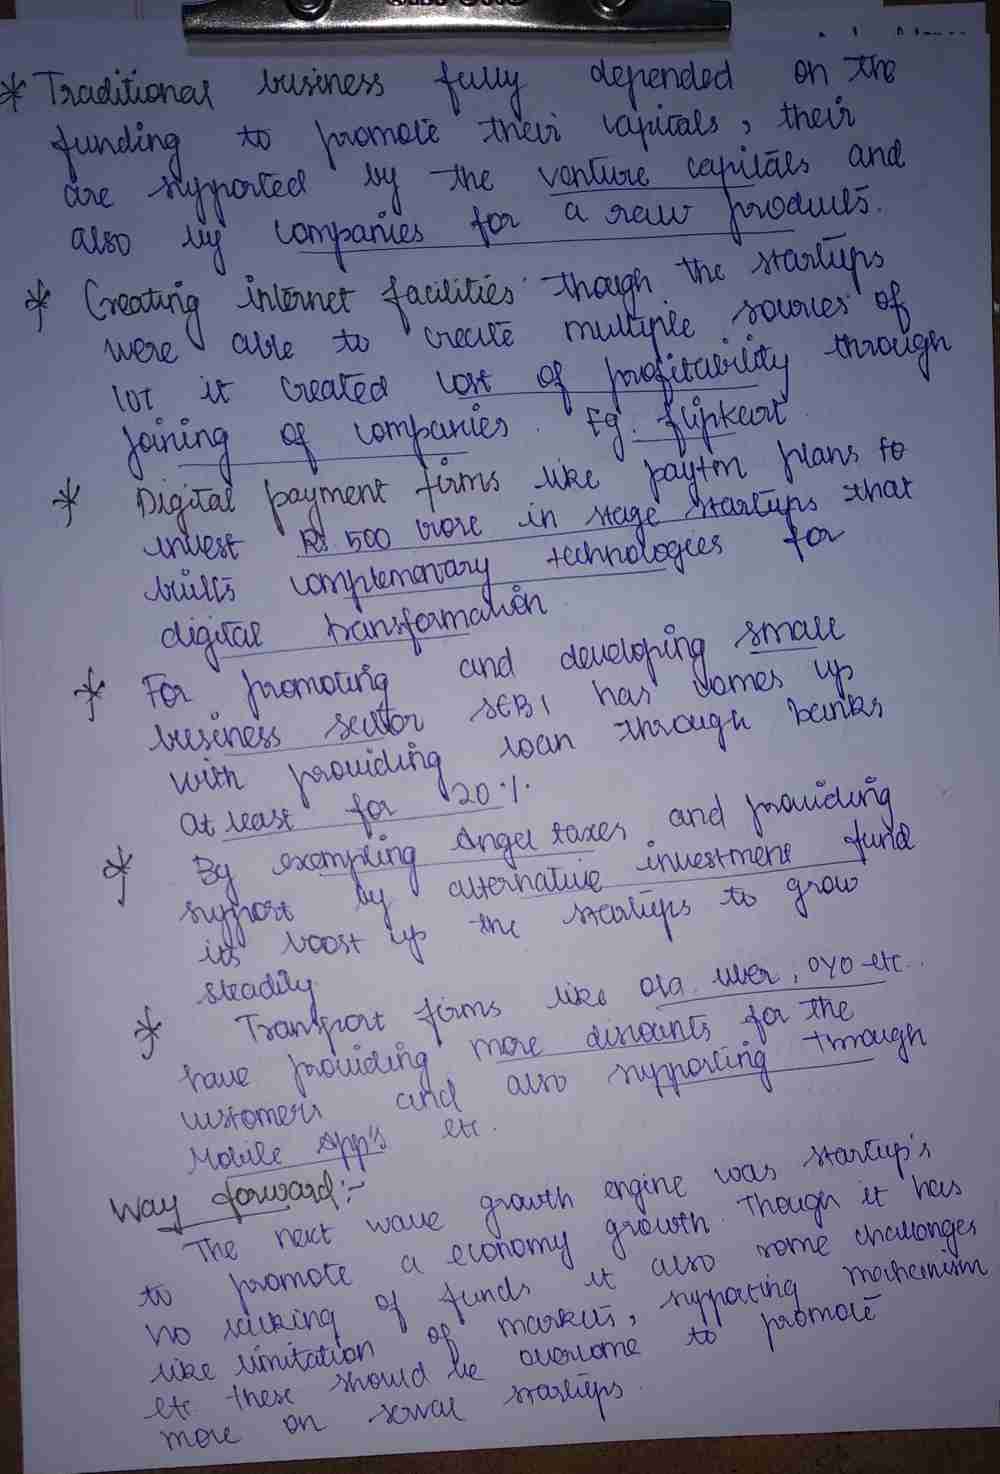 * Traditional business fully depended on the
funding to promote their capitals, their
are supported by the venture capitals and
also by companies for a raw products.
* Creating internet facilities though the startups
were able to create multiple sources of
lot it created lost of profitability through
joining of companies. Eg. flipkart
* Digital payment firms like paytm plans to
invest Rs. 500 crore in stage startups that
builts complementary technologies for
digital transformation
* For promoting and developing small
business sector SEBI has comes up
with providing loan through banks
at least for 20%.
* By exempting Angel taxes and providing
support by alternative investment fund
its boost up the startups to grow
steadily.
* Transport firms like ola uber, OYO etc..
have providing more discounts for the
customers and also supporting through
Mobile App's etc.
Way forward:-
The next wave growth engine was startup's
to promote a economy growth. Though it has
no lacking of funds it also some challenges
like limitation of markets, supporting mechanism
etc these should be overcome to promote
more on startups.